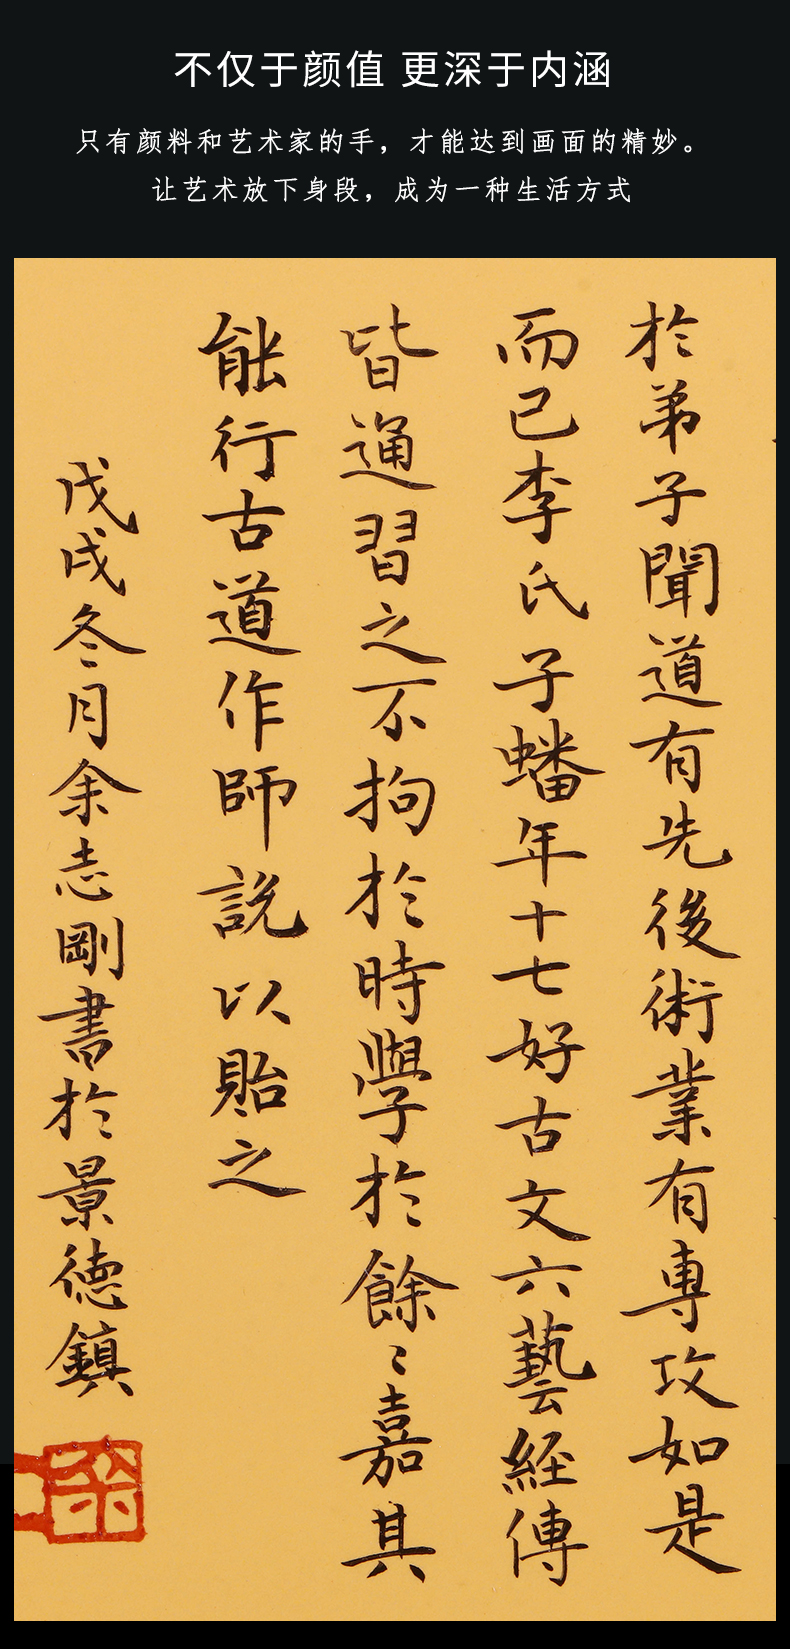 不仅于颜值 更深于内涵
只有颜料和艺术家的手，才能达到画面的精妙。
让艺术放下身段，成为一种生活方式
於弟子聞道有先後術業有專攻如是
而已李氏子蟠年十七好古文六藝經傳
皆通習之不拘於時學於餘〻嘉其
能行古道作師説以貽之
戊戌冬月余志剛書於景德鎮
余